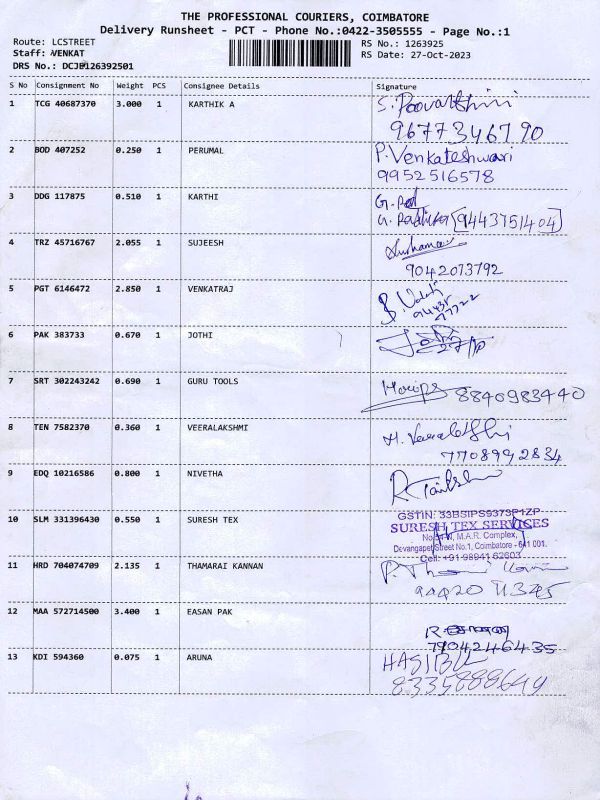 THE PROFESSIONAL COURIERS, COIMBATORE
Delivery Runsheet - PCT - Phone No.:0422-3505555 - Page No.:1
Route: LCSTREET
RS No.: 1263925
Staff: VENKAT
RS Date: 27-Oct-2023
DRS No.: DCJB126392501
S No Consignment No Weight PCS Consignee Details Signature
1 TCG 40687370 3.000 1 KARTHIK A S. Poovathini
9677346790
2 BOD 407252 0.250 1 PERUMAL P. Venkateshwari
9952516578
3 DDG 117875 0.510 1 KARTHI G.
G. [9443751404]
4 TRZ 45716767 2.055 1 SUJEESH
9042073792
5 PGT 6146472 2.850 1 VENKATRAJ
94435
77722
6 PAK 383733 0.670 1 JOTHI
27/10
7 SRT 302243242 0.690 1 GURU TOOLS 8840983440
8 TEN 7582370 0.360 1 VEERALAKSHMI
7708992834
9 EDQ 10216586 0.800 1 NIVETHA
10 SLM 331396430 0.550 1 SURESH TEX GSTIN: 33BSIPS9373P1ZP
SURESH TEX SERVICES
M.A.R. Complex,
Devangapet Street No.1, Coimbatore - 641 001.
Cell: +91 98941 62603
11 HRD 704074709 2.135 1 THAMARAI KANNAN
12 MAA 572714500 3.400 1 EASAN PAK
7904246435
13 KDI 594360 0.075 1 ARUNA HASIBUL